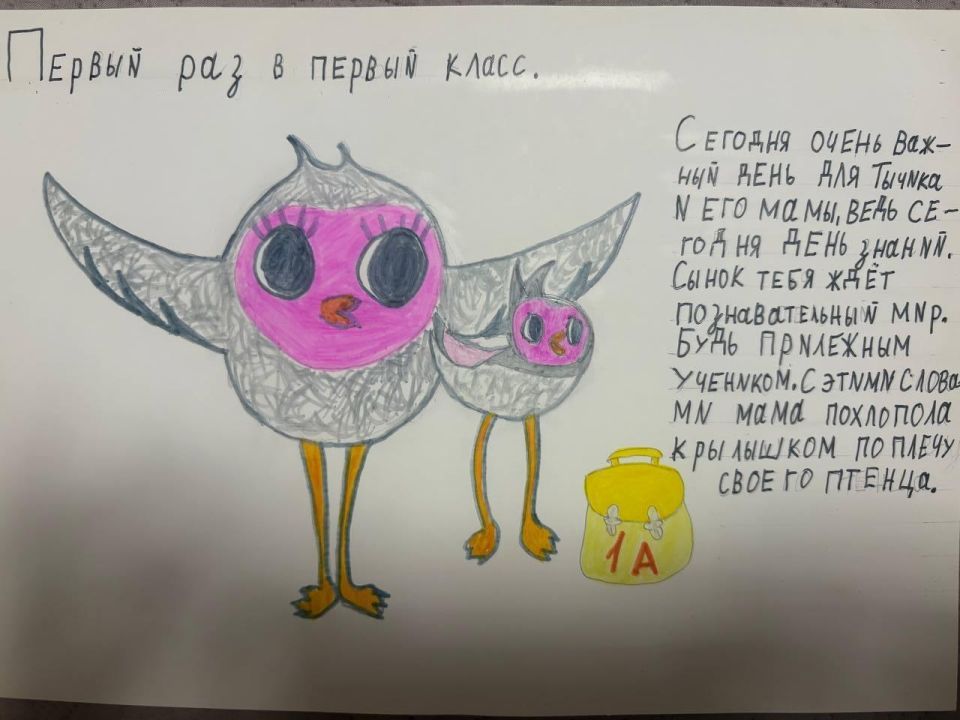 Первый раз в первый класс.
Сегодня очень важ-
ный день для Тычика
и его мамы, ведь се-
годня день знаний.
Сынок тебя ждёт
познавательный мир.
Будь прилежным
учеником. С этими слова
ми мама похлопола
крылышком по плечу
своего птенца.
1А